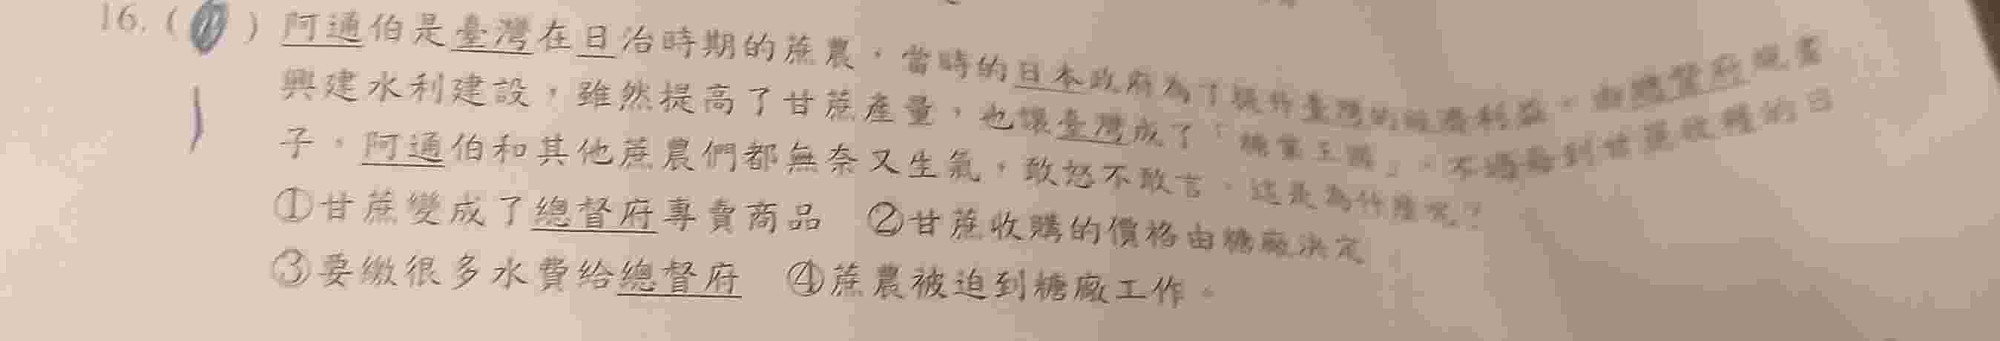 16.( ) 阿通伯是臺灣在日治時期的蔗農，當時的日本政府為了提升臺灣的經濟利益，由總督府規畫
興建水利建設，雖然提高了甘蔗產量，也讓臺灣成了「糖業王國」，不過每到甘蔗收穫的日
子，阿通伯和其他蔗農們都無奈又生氣，敢怒不敢言，這是為什麼呢？
①甘蔗變成了總督府專賣商品 ②甘蔗收購的價格由糖廠決定
③要繳很多水費給總督府 ④蔗農被迫到糖廠工作。